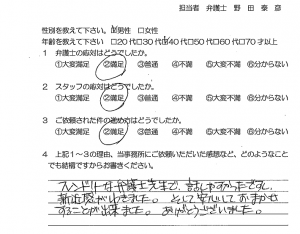 担当者 弁護士 野田 泰彦
性別を教えて下さい。 ☑男性 □女性
年齢を教えて下さい □20代□30代☑40代□50代□60代□70才以上
1 弁護士の応対はどうでしたか。
①大変満足 ②満足 ③普通 ④不満 ⑤大変不満 ⑥分からない
2 スタッフの応対はどうでしたか。
①大変満足 ②満足 ③普通 ④不満 ⑤大変不満 ⑥分からない
3 ご依頼された件の進め方はどうでしたか。
①大変満足 ②満足 ③普通 ④不満 ⑤大変不満 ⑥分からない
4 上記1～3の理由、当事務所にご依頼いただいた感想など、どのようなこと
でも結構ですからお書きください。
フレンドリーな弁護士先生で、話しやすかったですし、
親近感がわきました。 とても安心しておまかせ
することが出来ました。 ありがとうございました。